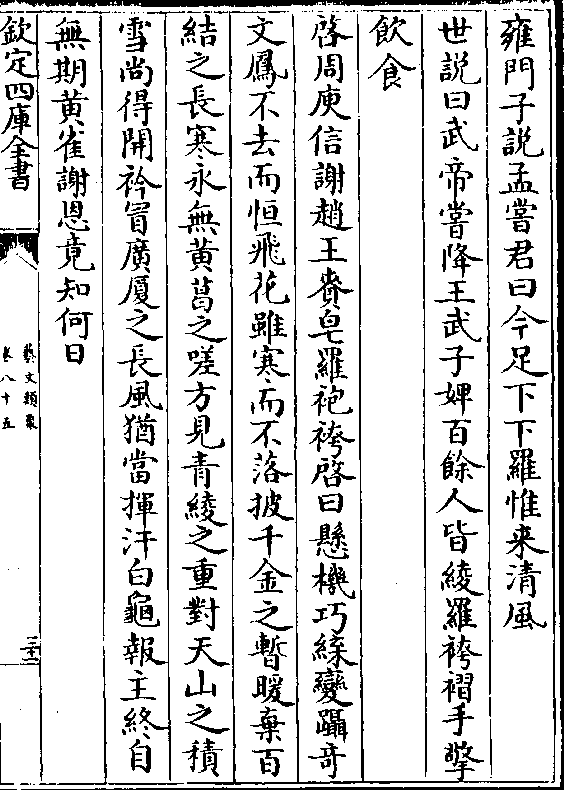 雍門子説孟嘗君曰今足下下羅惟来清風
世説曰武帝嘗降王武子婢百餘人皆綾羅袴褶手擎
飲食
啓周庾信謝趙王賚皂羅袍袴啓曰懸機巧緤變躡奇
文鳳不去而恒飛花雖寒而不落披千金之暫暖棄百
結之長寒永無黄葛之嗟方見青綾之重對天山之積
雪尚得開衿冒廣厦之長風猶當揮汗白龜報主終自
無期黄雀謝恩竟知何日
欽定四庫全書
藝文類聚
卷八十五
三十二